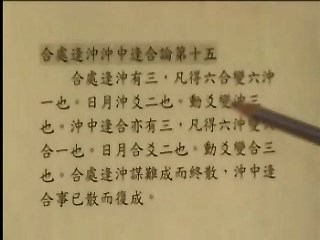 合處逢沖沖中逢合論第十五
合處逢沖有三，凡得六合變六沖
一也。日月沖爻二也。動爻變沖三
也。沖中逢合亦有三，凡得六沖變六
合一也。日月合爻二也。動爻變合三
也。合處逢沖謀雖成而終散，沖中逢
合事已散而復成。